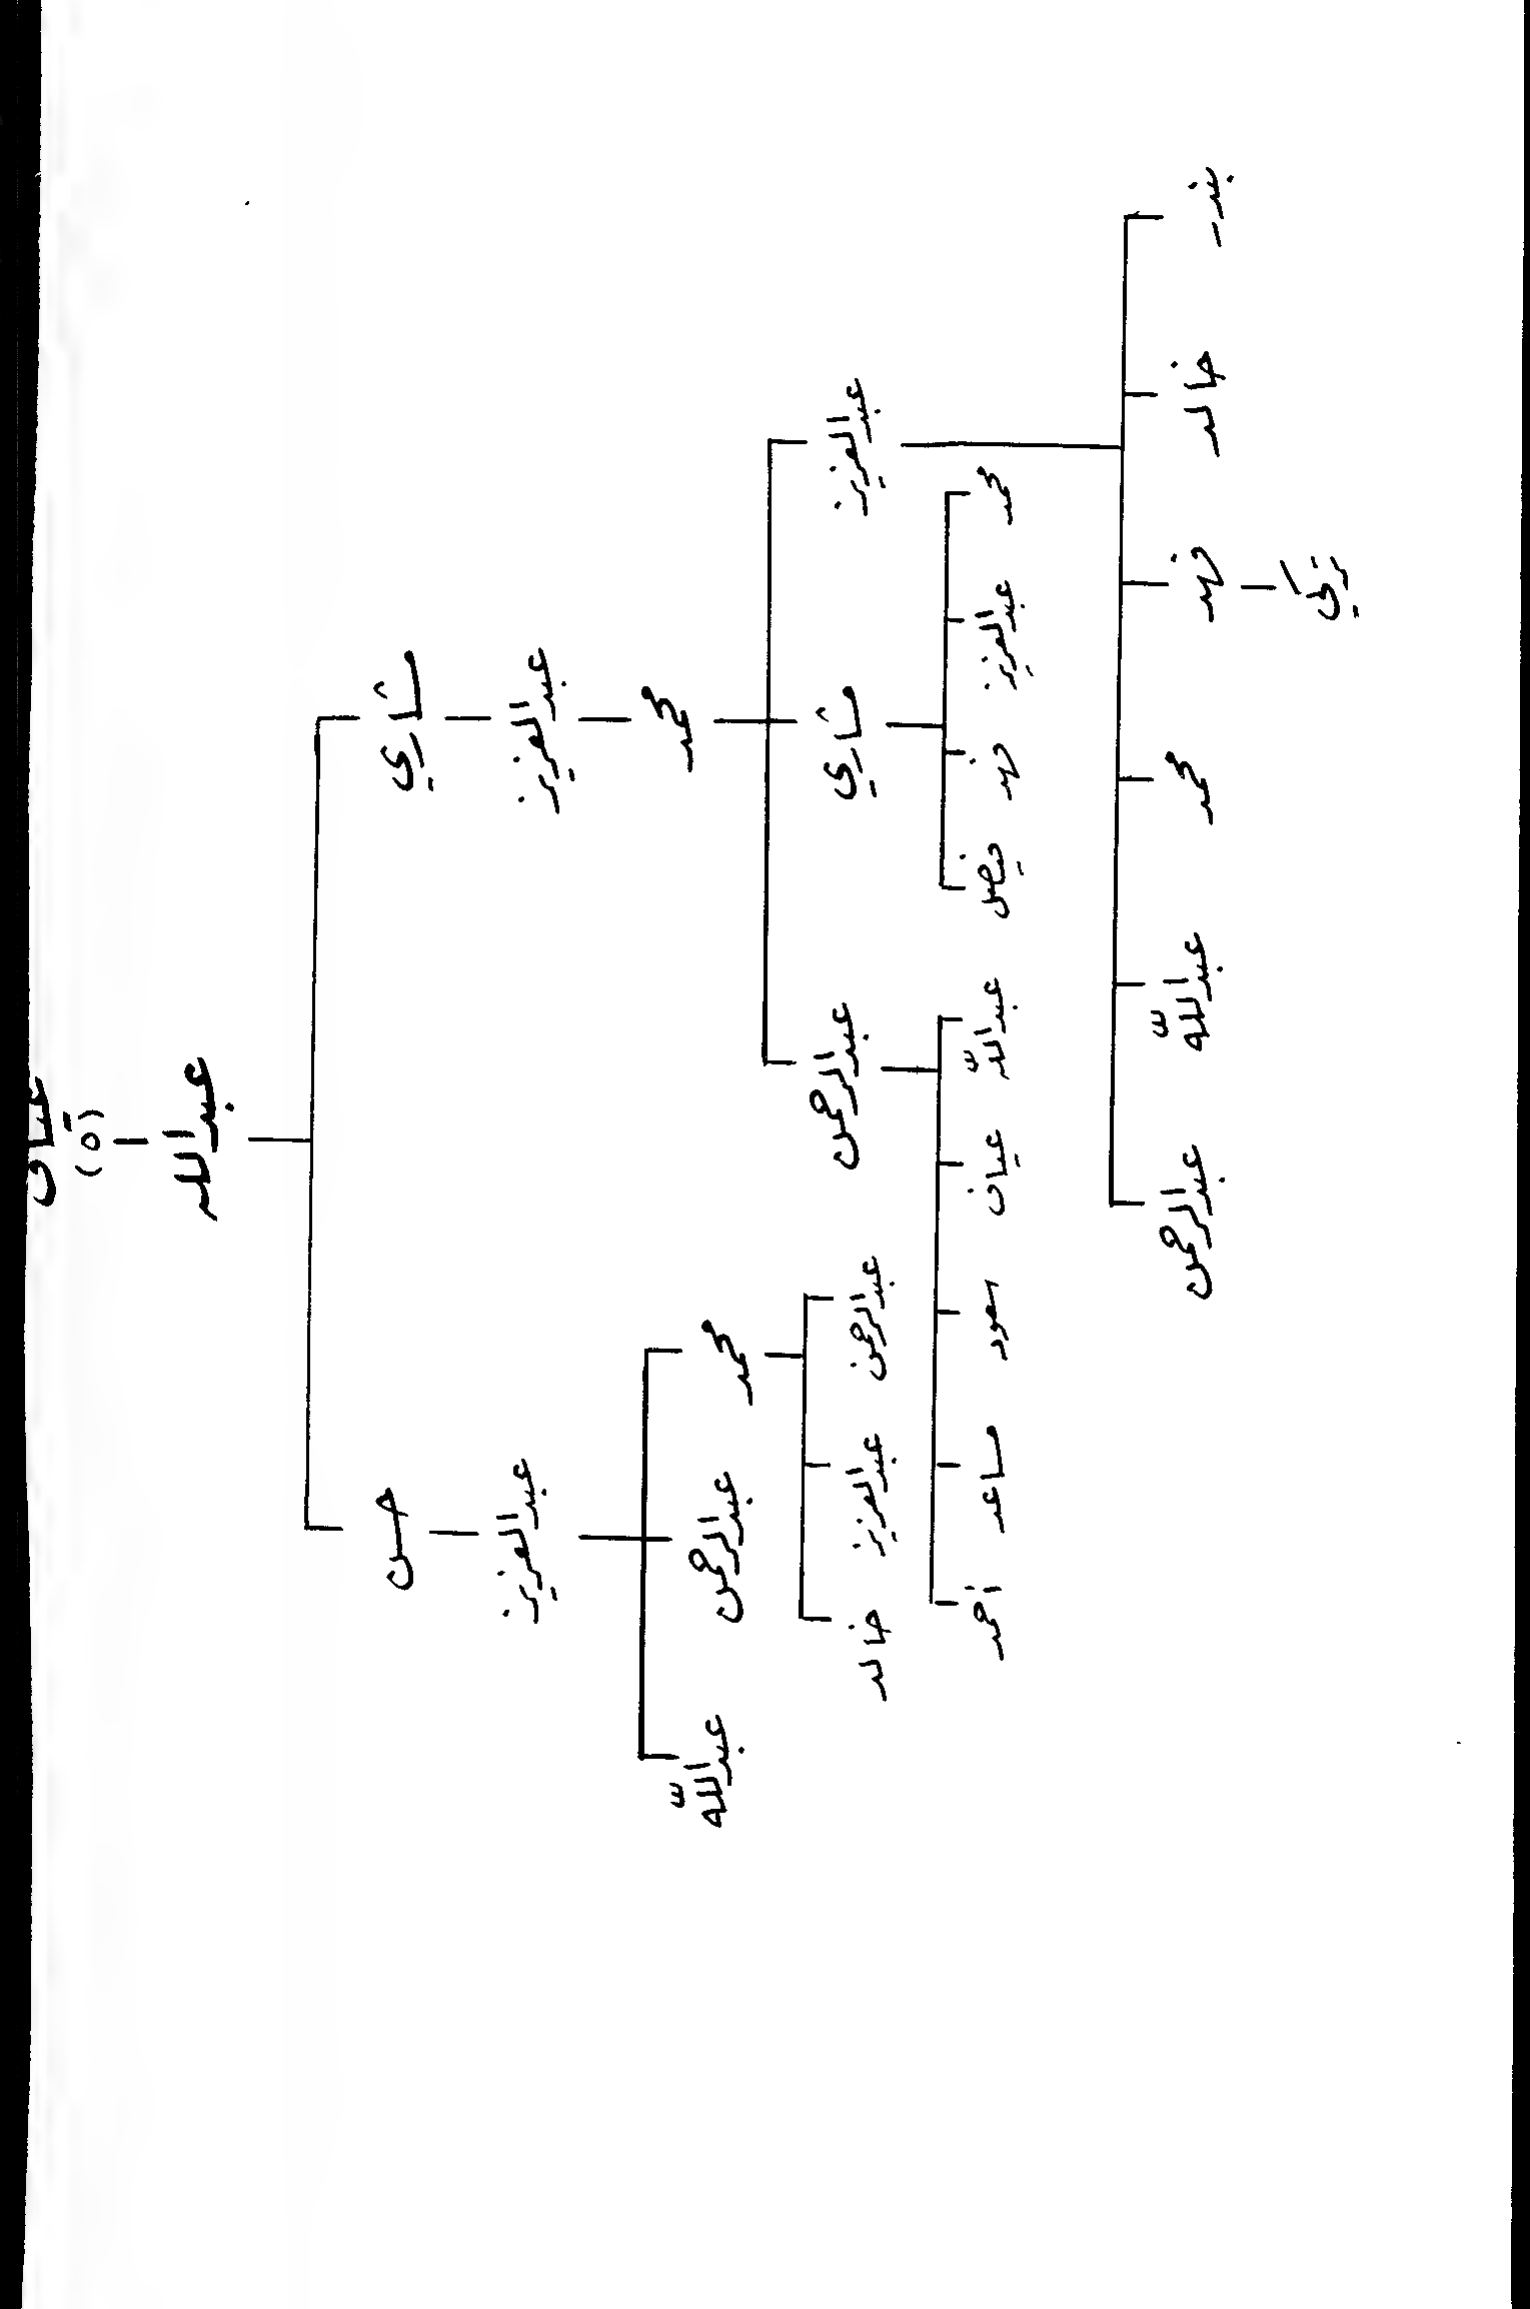 (٥)
عبدالله
مشاري
حسن
عبدالعزيز
عبدالعزيز
محمد
محمد
عبدالرحمن
عبداللّه
عبدالعزيز
مشاري
عبدالرحمن
عبدالرحمن
عبدالعزيز
خالد
محمد
عبدالعزيز
فهد
فيصل
عبداللّه
عياف
سعود
مساعد
أحمد
بندر
خالد
فهد
محمد
عبداللّه
عبدالرحمن
تركي